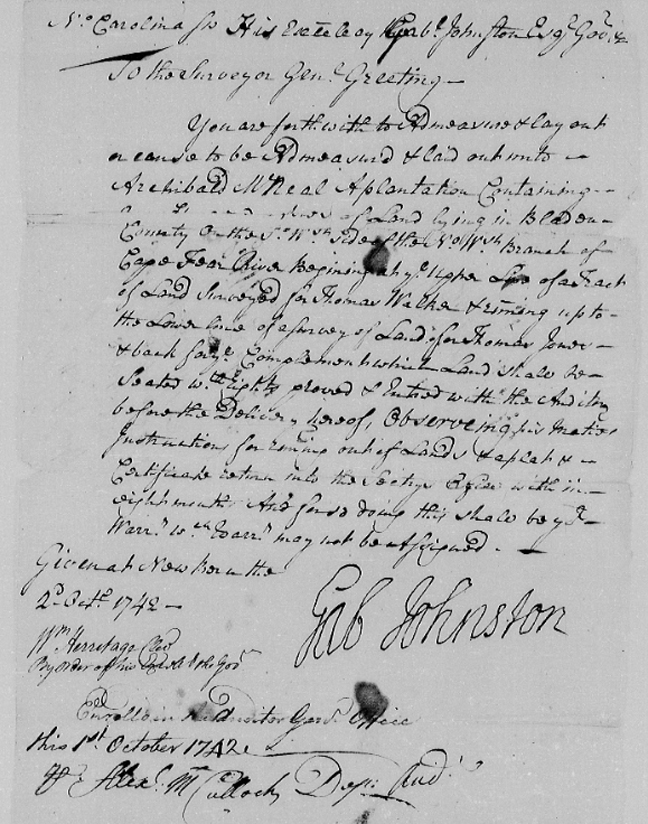 No: Carolina ss His Excelly Gabl. Johnston Esqr. Govr. &c
To the Surveyor Genl. Greeting –
You are forthwith to Admeasure & lay out
or cause to be Admeasur'd & laid out unto –
Archibald McNeal A plantation Containing –
of Land lying in Bladen –
County On the So. Wst. side of the No. Wst. Branch of
Cape Fear River Begining at ye. upper Line of a Tract
of Land Surveyed for Thomas Walker & runing up to –
the Lower line of a survey of Land for Thomas Jones –
& back for ye. Complement which Land shall be –
Seated wth. rights proved & Entred with the Auditor
before the Delivery hereof, Observeing his Maties
Instructions for runing out of Lands & a plat & –
Certificate return into the Sectys Office with in –
eight months And for so doing this shall be yr. –
Warrt. wch. Warrt. may not be Assigned. –
Given at New Bern the
2d. Octr. 1742 –
Gab Johnston
Wm Herritage
By order of his Excelly the Govr
Enroll'd in the Auditor Genrs. Office
this 1st. October 1742
Pr Alexr. McCulloch Depr. Audr.